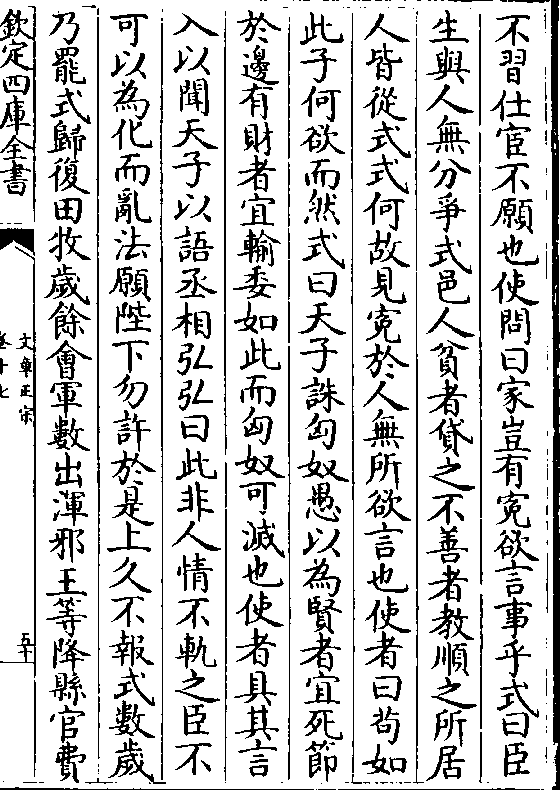 不習仕宦不願也使問曰家豈有寃欲言事乎式曰臣
生與人無分爭式邑人貧者貸之不善者教順之所居
人皆從式式何故見寃於人無所欲言也使者曰茍如
此子何欲而然式曰天子誅匈奴愚以為賢者宜死節
於邊有財者宜輸委如此而匈奴可滅也使者具其言
入以聞天子以語丞相弘弘曰此非人情不軌之臣不
可以為化而亂法願陛下勿許於是上久不報式數歲
乃罷式歸復田牧歲餘會軍數出渾邪王等降縣官費
欽定四庫全書
文章正宗
卷十七
五十